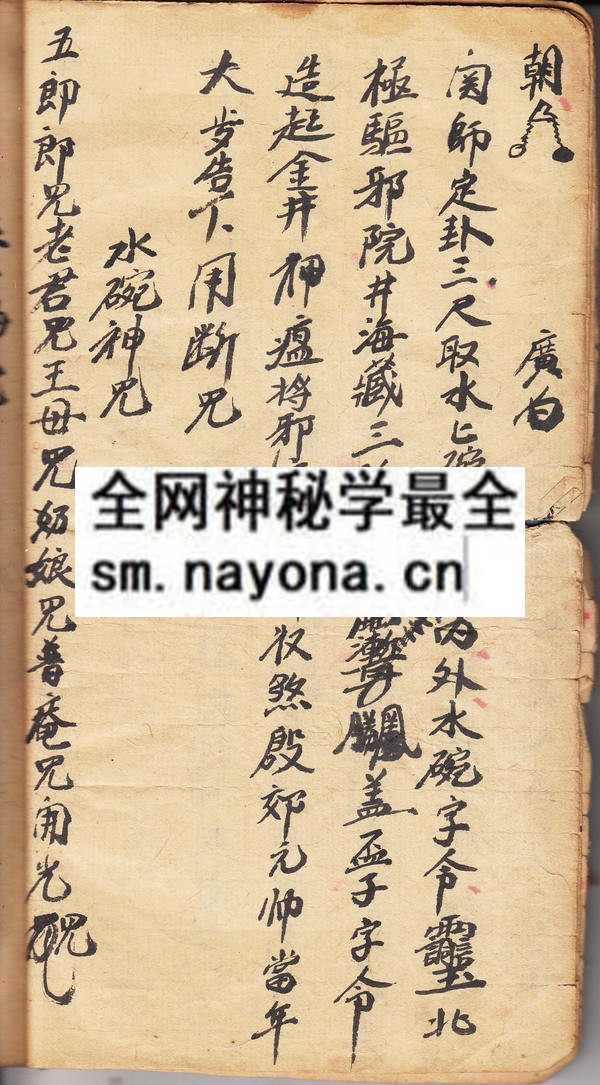 朝
廣白
関師定卦三尺取水七碗
外水碗字令
北
極驅邪院井海藏三
盖盃子字令
造起金井押瘟将邪
收煞殷郊元帅當年
大步告下用斷咒
水碗神咒
五郎郎咒老君咒王母咒奶娘咒普庵咒開光咒
全网神秘学最全
sm.nayona.cn